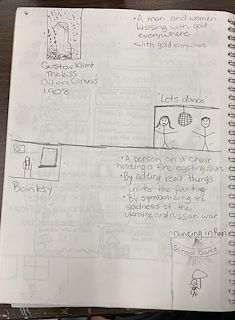 • A man and women
kissing with gold
everywhere
• With gold everywhere
Gustav Klimt
The Kiss
Oil on Canvas
1908
"Lets dance"
• A person on a chair
holding a fire
• By adding real things
in to the
• By symbolizing the
sadness of the
Ukraine and russian war
Banksy
"Dancing in Rain"
School Dance